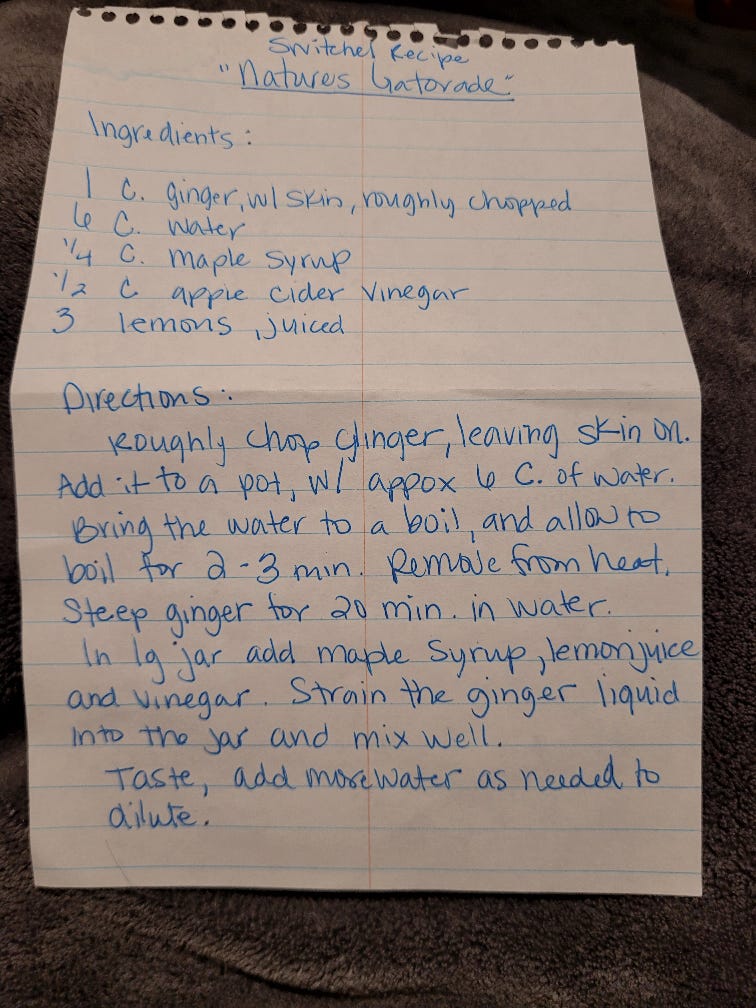 Switchel Recipe
"Natures Gatorade"
Ingredients:
1 C. ginger, w/ skin, roughly chopped
6 C. water
1/4 C. maple syrup
1/2 C apple cider vinegar
3 lemons, juiced
Directions:
Roughly chop ginger, leaving skin on.
Add it to a pot, w/ appox 6 C. of water.
Bring the water to a boil, and allow to
boil for 2-3 min. Remove from heat.
Steep ginger for 20 min. in water.
In lg jar add maple syrup, lemon juice
and vinegar. Strain the ginger liquid
into the jar and mix well.
Taste, add more water as needed to
dilute.